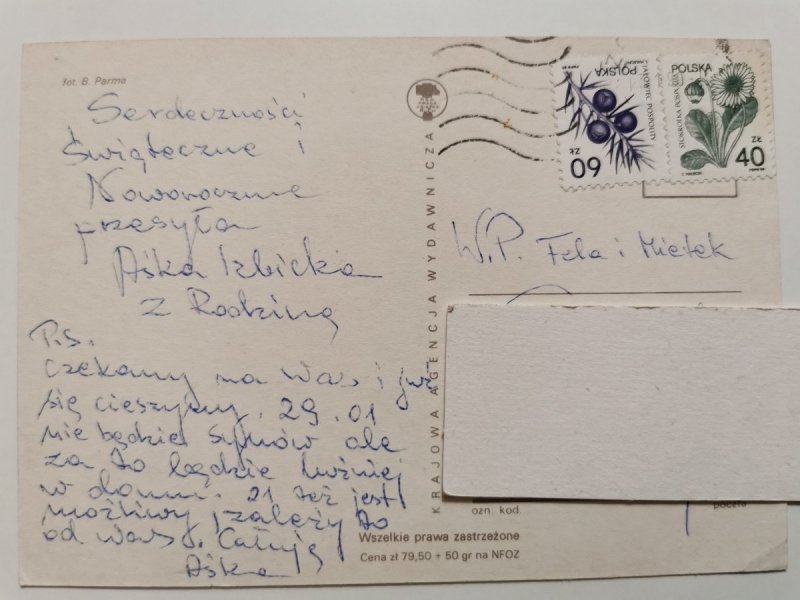 fot. B. Parma
Serdeczności
Świąteczne i
Noworoczne
przesyła
Aśka Izbicka
z Rodziną
P.S.
Czekamy na Was i już
się cieszymy. 29.01
nie będzie synów ale
za to będzie luźniej
w domu. 21 też jest
możliwy, zależy to
od Was. Całuję
Aśka
KRAJOWA AGENCJA WYDAWNICZA
POLSKA
JAŁOWIEC POSPOLITY
60 ZŁ
POLSKA
STOKROTKA POSPOLITA
40 ZŁ
W.P. Fela i Mietek
ozn. kod.
poczta
Wszelkie prawa zastrzeżone
Cena zł 79,50 + 50 gr na NFOZ